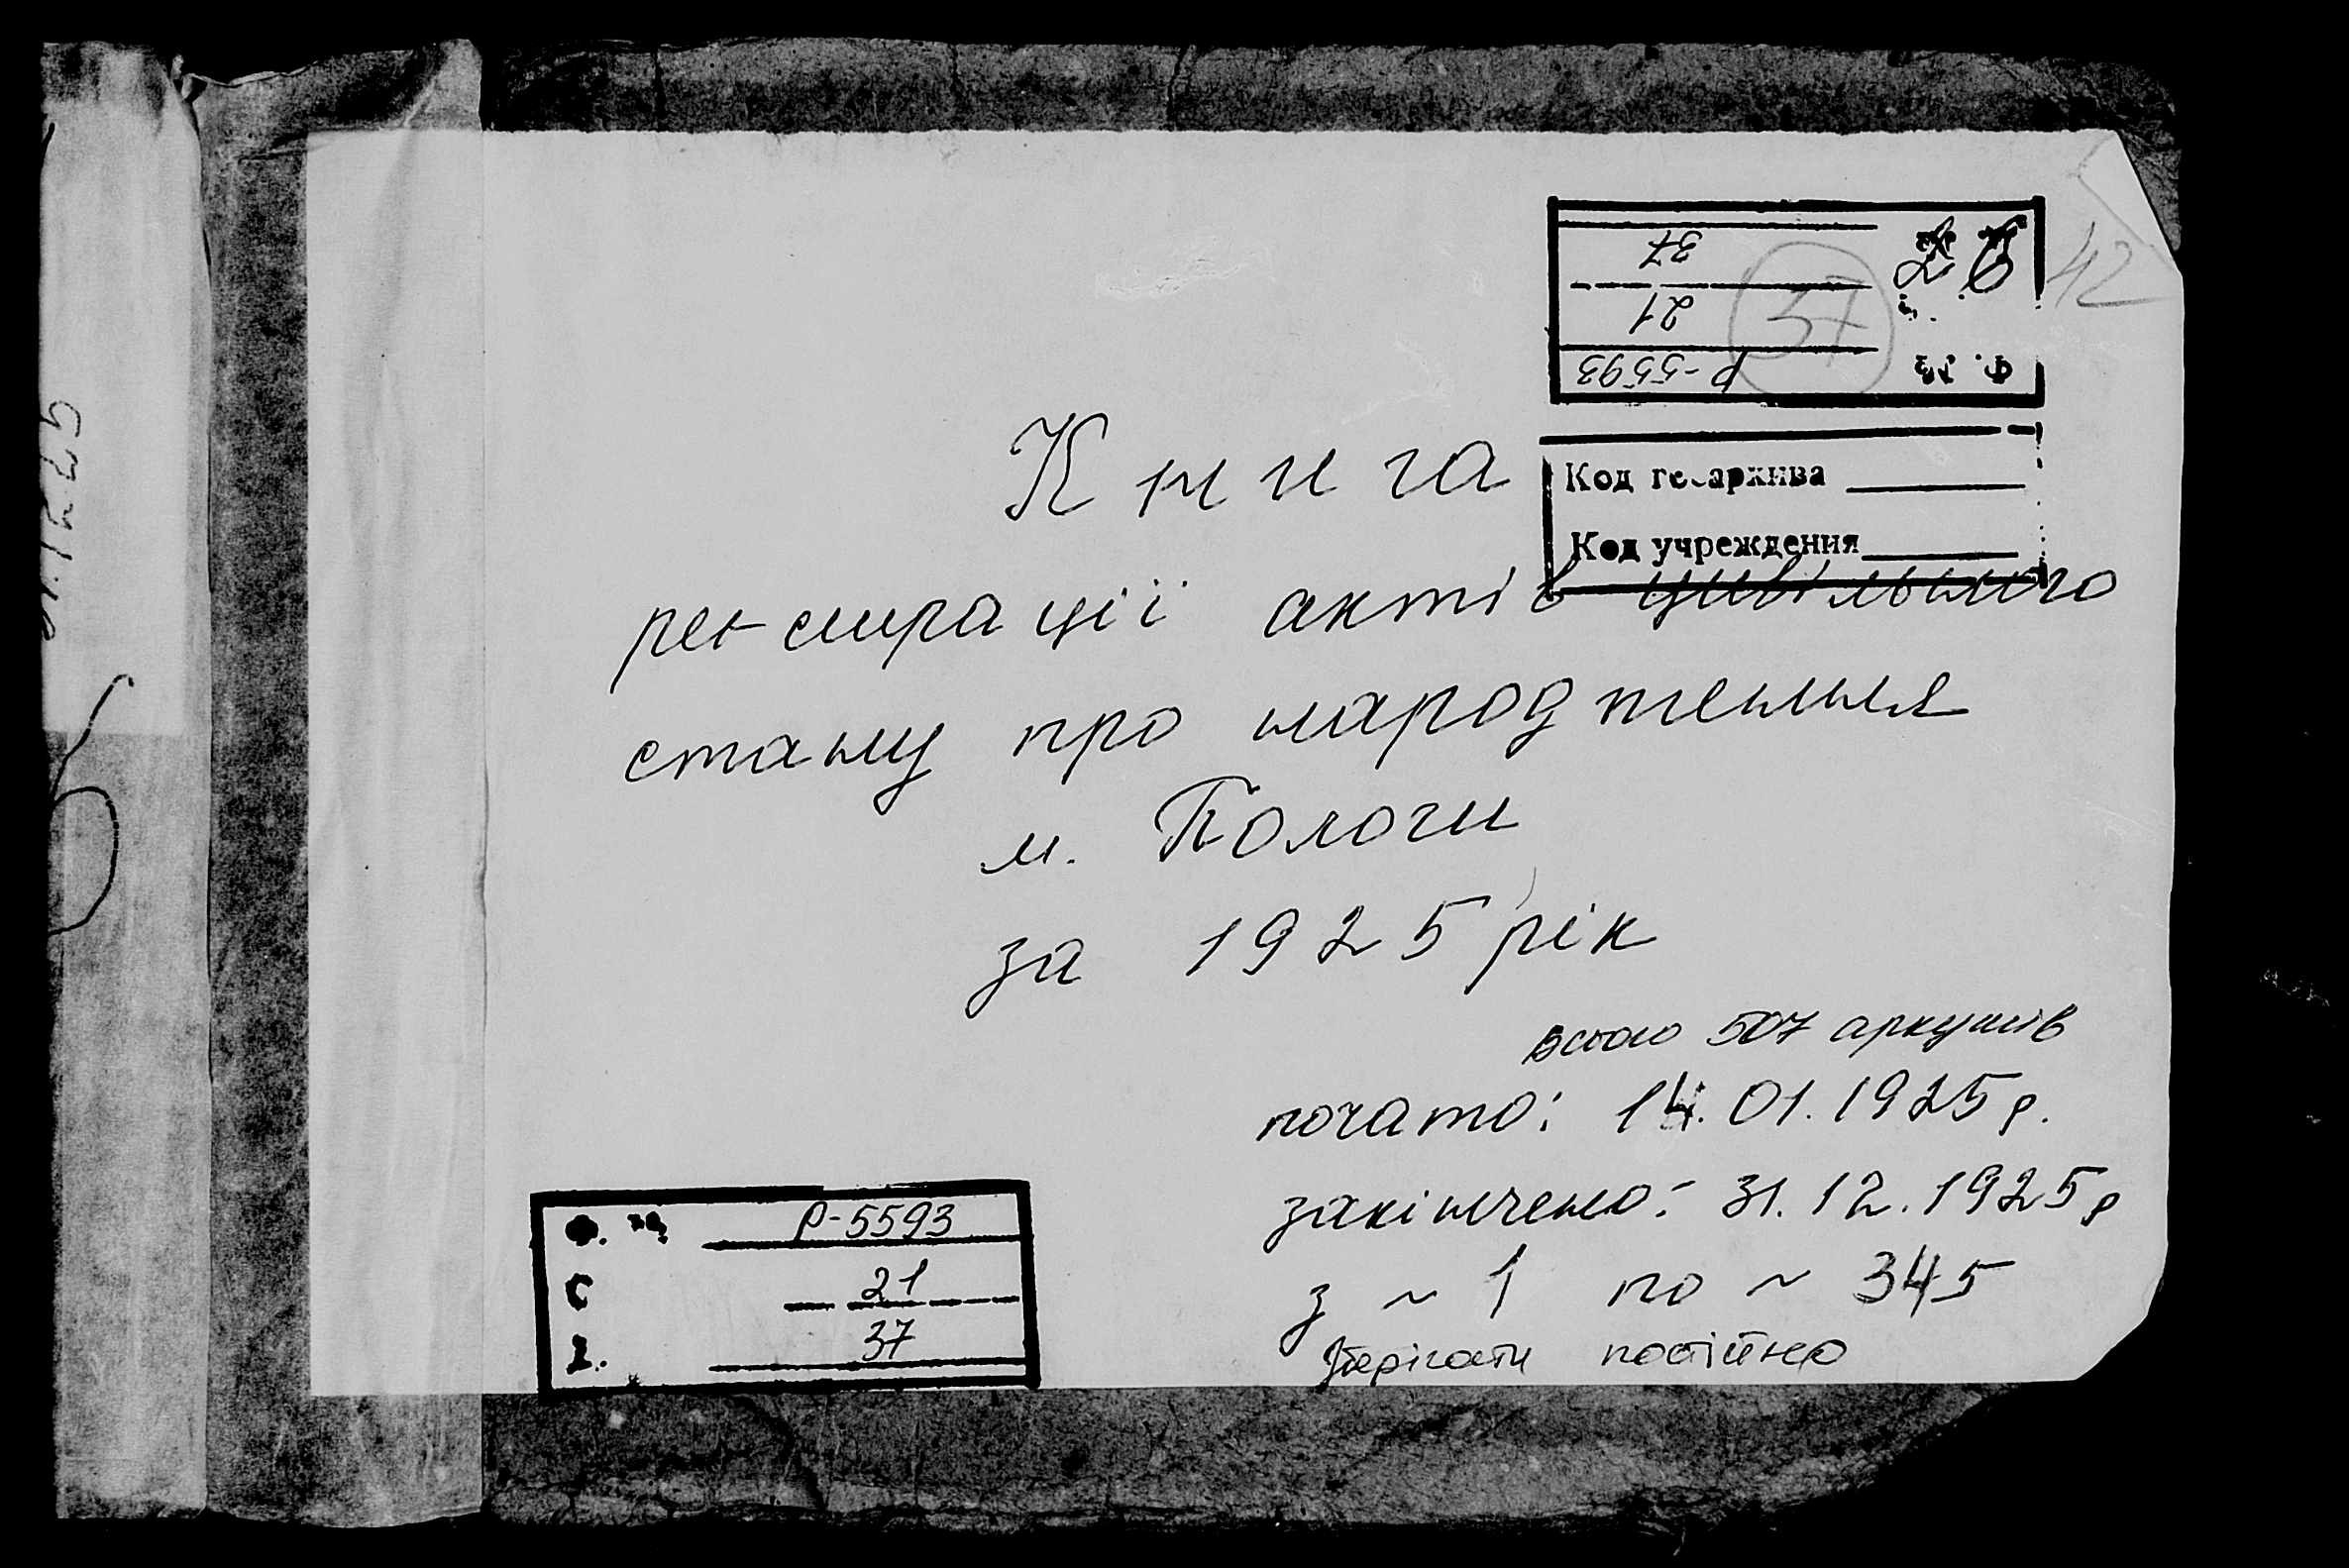 Р-5593
21
37
37
42
Код госархива
Код учреждения
Книга
реєстрації актів цивільного
стану про народження
м. Пологи
за 1925 рік
всього 507 аркушів
почато: 14.01.1925 р.
закінчено: 31.12.1925 р
з ~ 1 по ~ 345
Зберігати постійно
Ф. № Р-5593
21
37